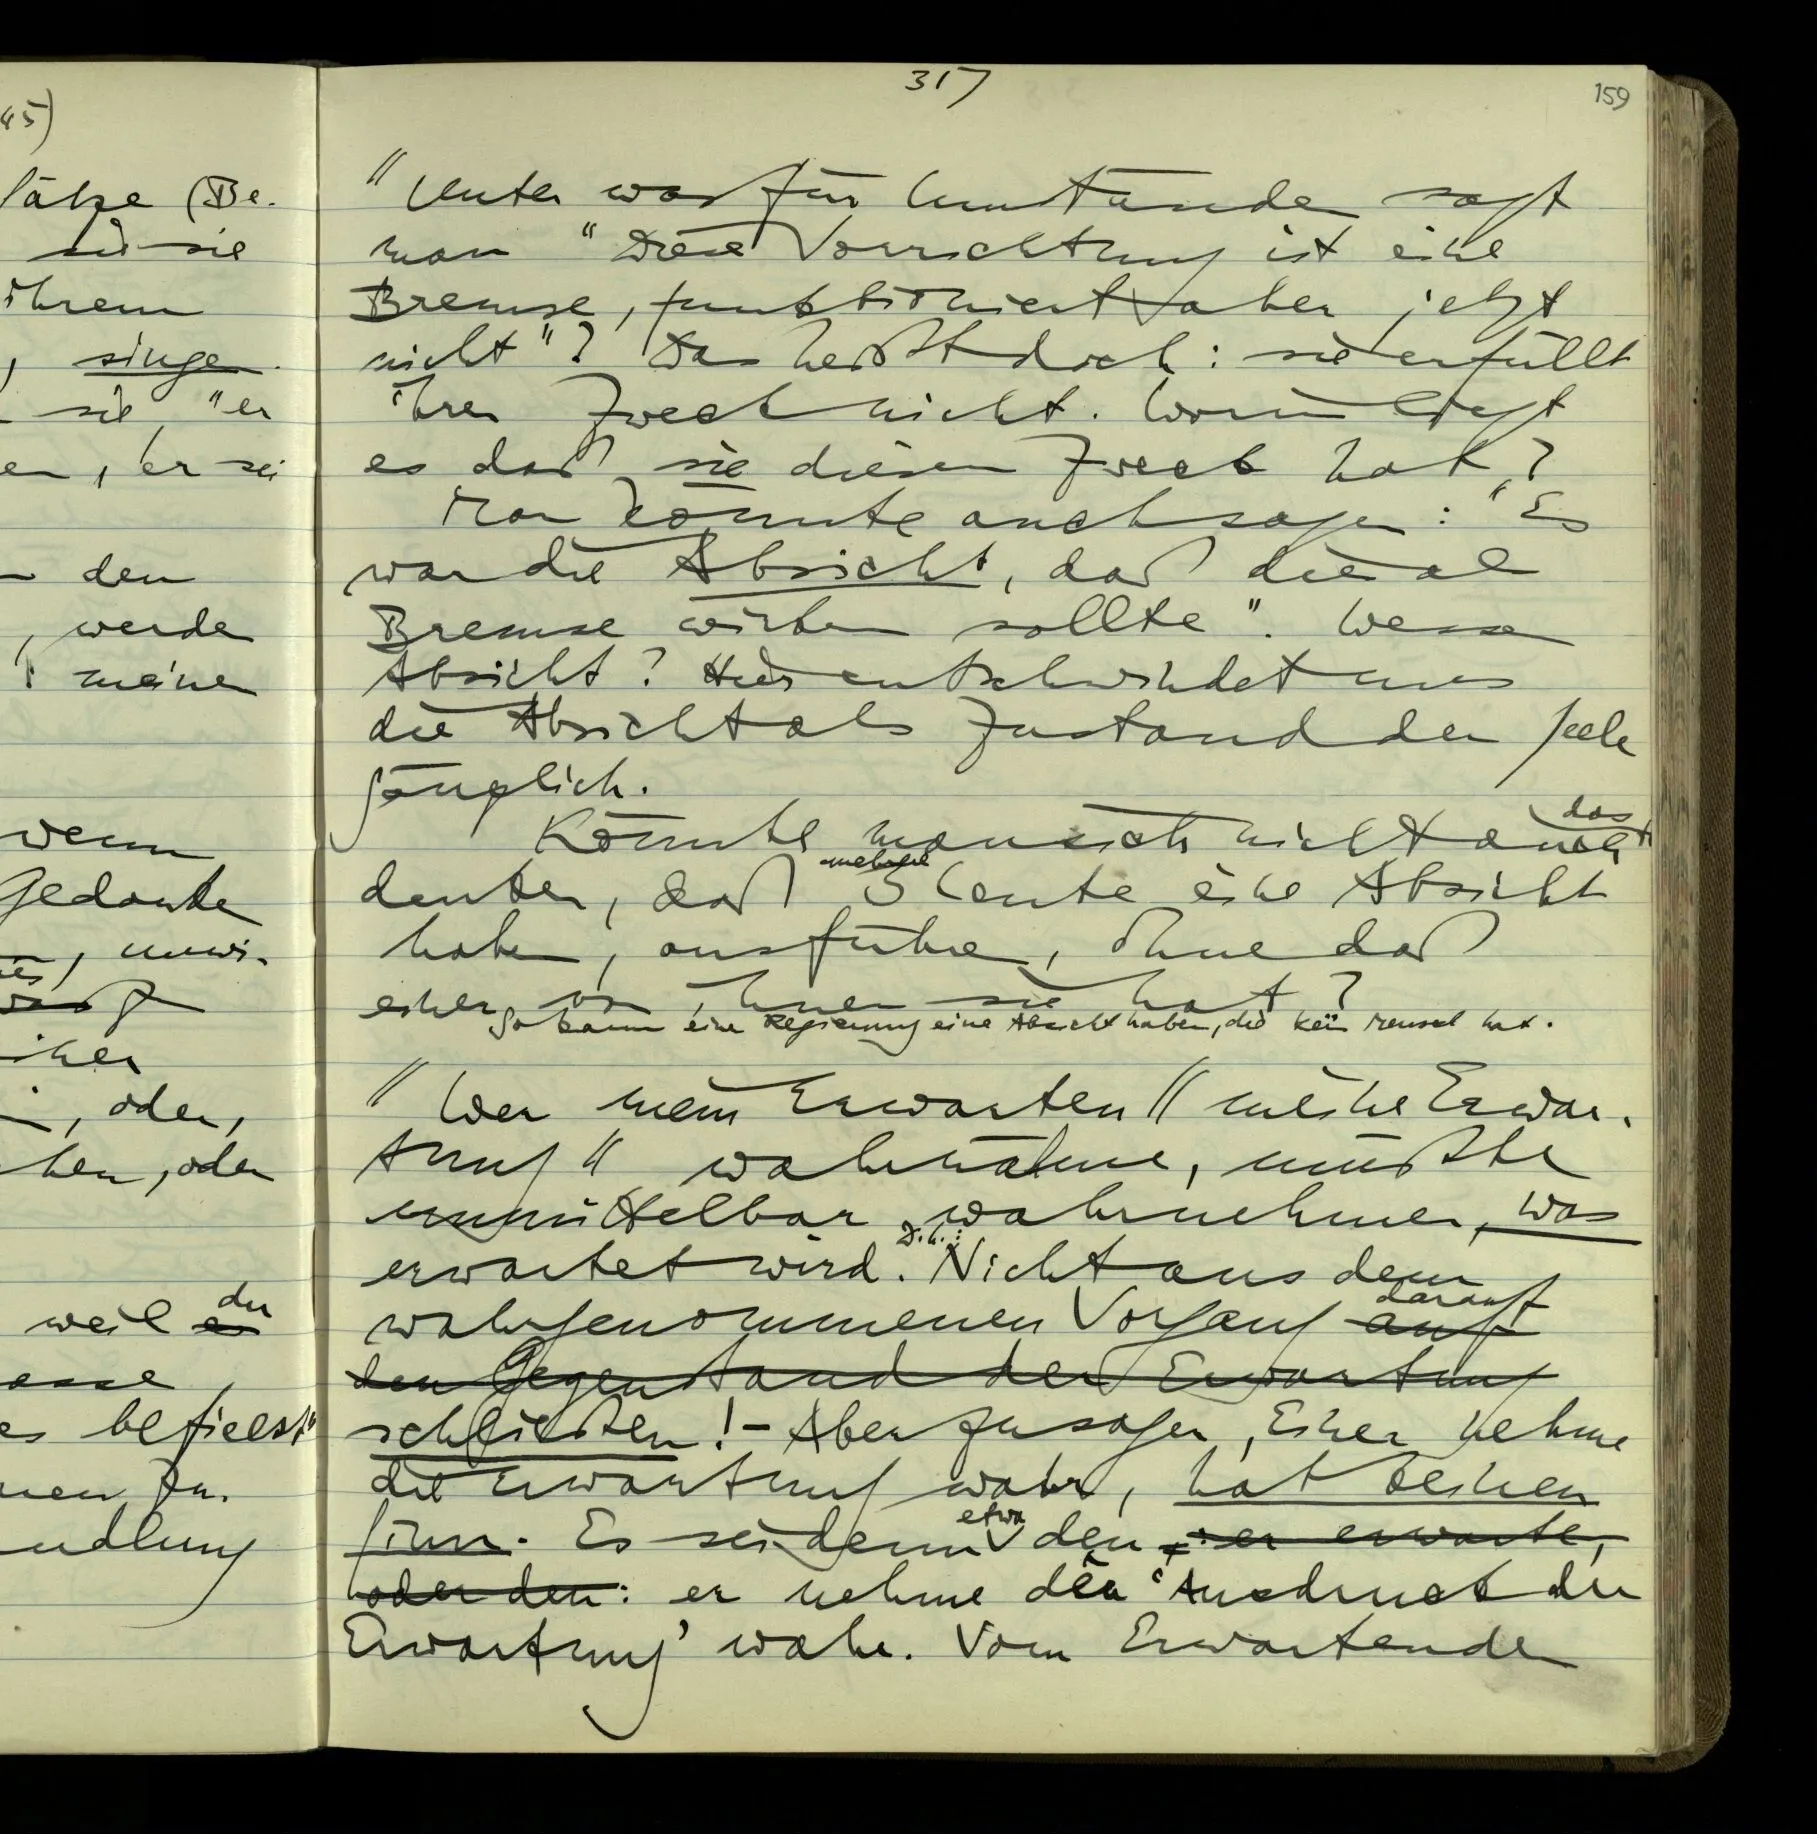 45)
Sätze (Be-
sie
ihrem
, singen.
sie "er
en, er sei
den
, werde
meinen
wenn
Gedanke
einer
, oder,
hen, oder
der
weil es
es befielst"
nen Zu-
ndlung
317
159
" Unter was für Umständen sagt
man "Diese Vorrichtung ist eine
Bremse, funktioniert aber jetzt
nicht"? Das heißt doch: sie erfüllt
ihren Zweck nicht. Worin liegt
es daß sie diesen Zweck hat?
Man könnte auch sagen: "Es
war die Absicht, daß dies als
Bremse wirken sollte". Wessen
Absicht? Hier entschwindet uns
die Absicht als Zustand der Seele
gänzlich.
das
Könnte man sich nicht auch
mehrere
denken, daß 3 Leute eine Absicht
haben, ausführen, ohne daß
einer von ihnen sie hat?
So kann eine Regierung eine Absicht haben, die kein Mensch hat.
" Wer mein Erwarten // meine Erwar-
tung // wahrnähme, müßte
unmittelbar wahrnehmen, was
D.h.:
erwartet wird. Nicht aus dem
darauf
wahrgenommenen Vorgang auf
den Gegenstand der Erwartung
schließen! – Aber zu sagen, Einer nehme
die Erwartung wahr, hat keinen
etwa
Sinn. Es sei denn den: er erwarte,
oder den: er nehme den 'Ausdruck der
Erwartung' wahr. Vom Erwartenden